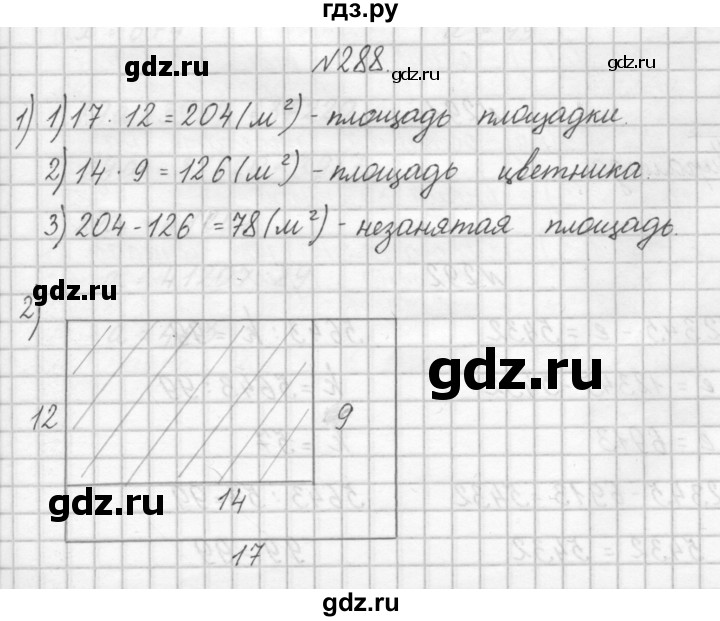 гдз.ру
№288.
gdz.ru
gdz.ru
1) 1) 17 · 12 = 204 (м²) - площадь площадки.
2) 14 · 9 = 126 (м²) - площадь цветника.
3) 204 - 126 = 78 (м²) - незанятая площадь.
gdz.ru
2)
gdz.ru
12
9
14
gdz.ru
17
gdz.ru